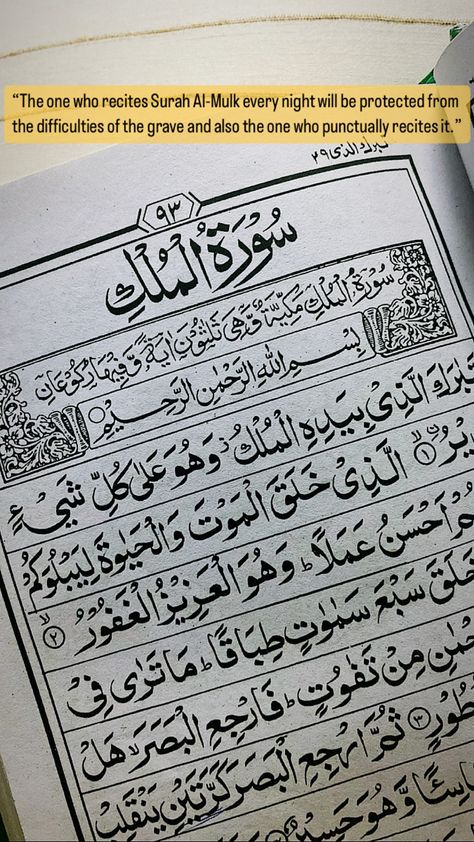 “The one who recites Surah Al-Mulk every night will be protected from
the difficulties of the grave and also the one who punctually recites it.”
تبرك الذی ۲۹
۹۳
سُوْرَةُ الْمُلْكِ
سُوْرَةُ الْمُلْكِ مَكِّيَّةٌ وَّهِيَ ثَلٰثُوْنَ اٰيَةً وَّفِيْهَا رُكُوْعَانِ
بِسْمِ اللّٰهِ الرَّحْمٰنِ الرَّحِيْمِ
تَبٰرَكَ الَّذِيْ بِيَدِهِ الْمُلْكُ ز وَهُوَ عَلٰى كُلِّ شَيْءٍ
يْرُ ۙ۱ الَّذِيْ خَلَقَ الْمَوْتَ وَالْحَيٰوةَ لِيَبْلُوَكُمْ
كُمْ اَحْسَنُ عَمَلًا ؕ وَهُوَ الْعَزِيْزُ الْغَفُوْرُ ۙ۲
خَلَقَ سَبْعَ سَمٰوٰتٍ طِبَاقًا ؕ مَا تَرٰى فِيْ
حْمٰنِ مِنْ تَفٰوُتٍ ؕ فَارْجِعِ الْبَصَرَ ۙ هَلْ
طُوْرٍ ۳ ثُمَّ ارْجِعِ الْبَصَرَ كَرَّتَيْنِ يَنْقَلِبْ
اسِئًا وَّهُوَ حَسِيْرٌ